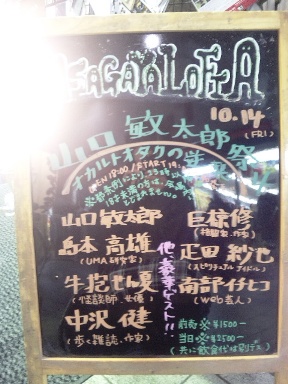 10.14
(FRI)
山口敏太郎祭
オカルトオタクの逆襲
OPEN 18:00 / START 19:
山口敏太郎
島本高雄
(UMA研究家)
牛抱せん夏
(怪談師、女優)
中沢健
(歩く雑誌、作家)
他豪華ゲスト!!
巨椋修
疋田紗也
(スピリチュアルアイドル)
南部イナヒコ
(web芸人)
前売 ¥1500-
当日 ¥2500-
(共に飲食代は別デス)